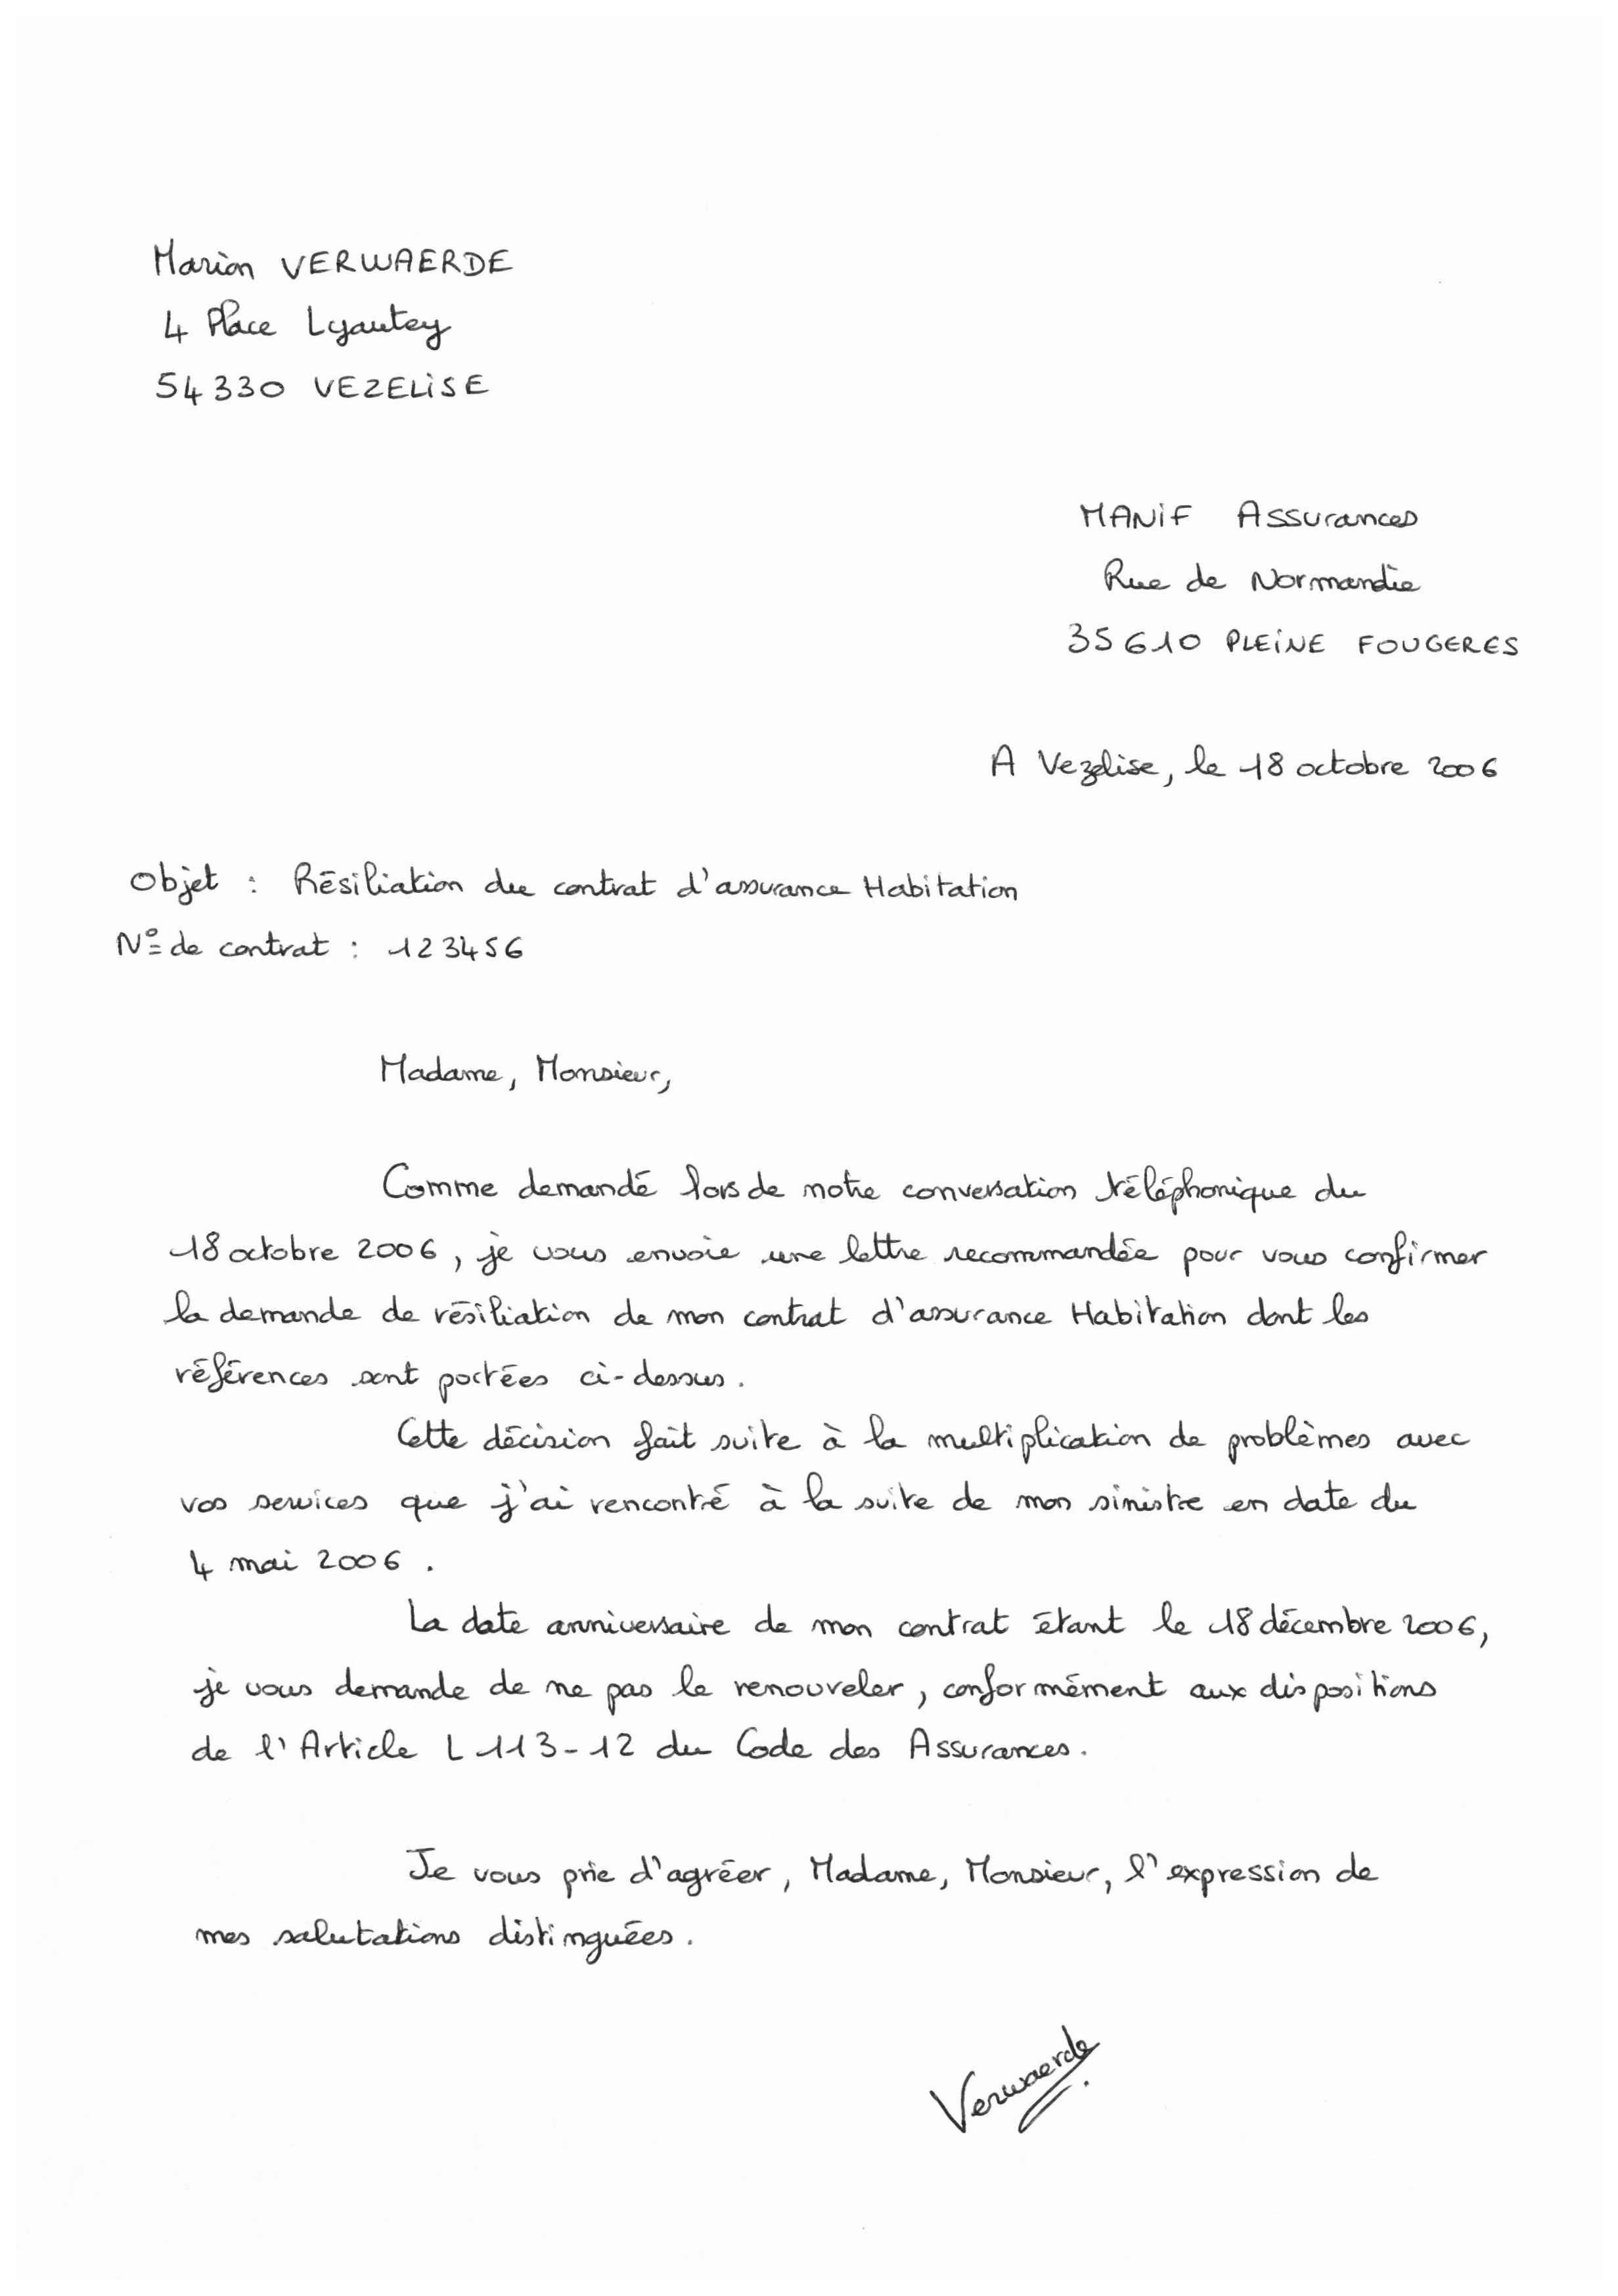 Marion VERWAERDE
4 Place Lyautey
54330 VEZELiSE
MANiF Assurances
Rue de Normandie
35610 PLEiNE FOUGERES
A Vezelise, le 18 octobre 2006
Objet : Résiliation du contrat d'assurance Habitation
N° de contrat : 123456
Madame, Monsieur,
Comme demandé lors de notre conversation téléphonique du
18 octobre 2006, je vous envoie une lettre recommandée pour vous confirmer
la demande de résiliation de mon contrat d'assurance Habitation dont les
références sont portées ci-dessus.
Cette décision fait suite à la multiplication de problèmes avec
vos services que j'ai rencontré à la suite de mon sinistre en date du
4 mai 2006.
La date anniversaire de mon contrat étant le 18 décembre 2006,
je vous demande de ne pas le renouveler, conformément aux dispositions
de l'Article L 113-12 du Code des Assurances.
Je vous prie d'agréer, Madame, Monsieur, l'expression de
mes salutations distinguées.
Verwaerde